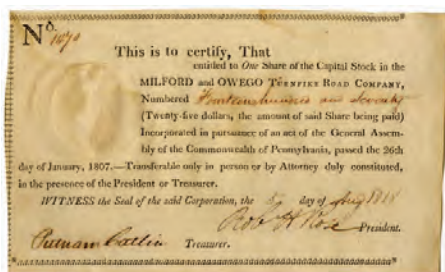 No. 1470
This is to certify, That
entitled to One Share of the Capital Stock in the
MILFORD and OWEGO TURNPIKE ROAD COMPANY,
Numbered Fourteen hundred and Seventy
(Twenty-five dollars, the amount of said Share being paid)
Incorporated in pursuance of an act of the General Assem-
bly of the Commonwealth of Pennsylvania, passed the 26th
day of January, 1807.—Transferable only in person or by Attorney duly constituted,
in the presence of the President or Treasurer.
WITNESS the Seal of the said Corporation, the day of Aug 1818
Rob H Rose President.
Putnam Catlin Treasurer.